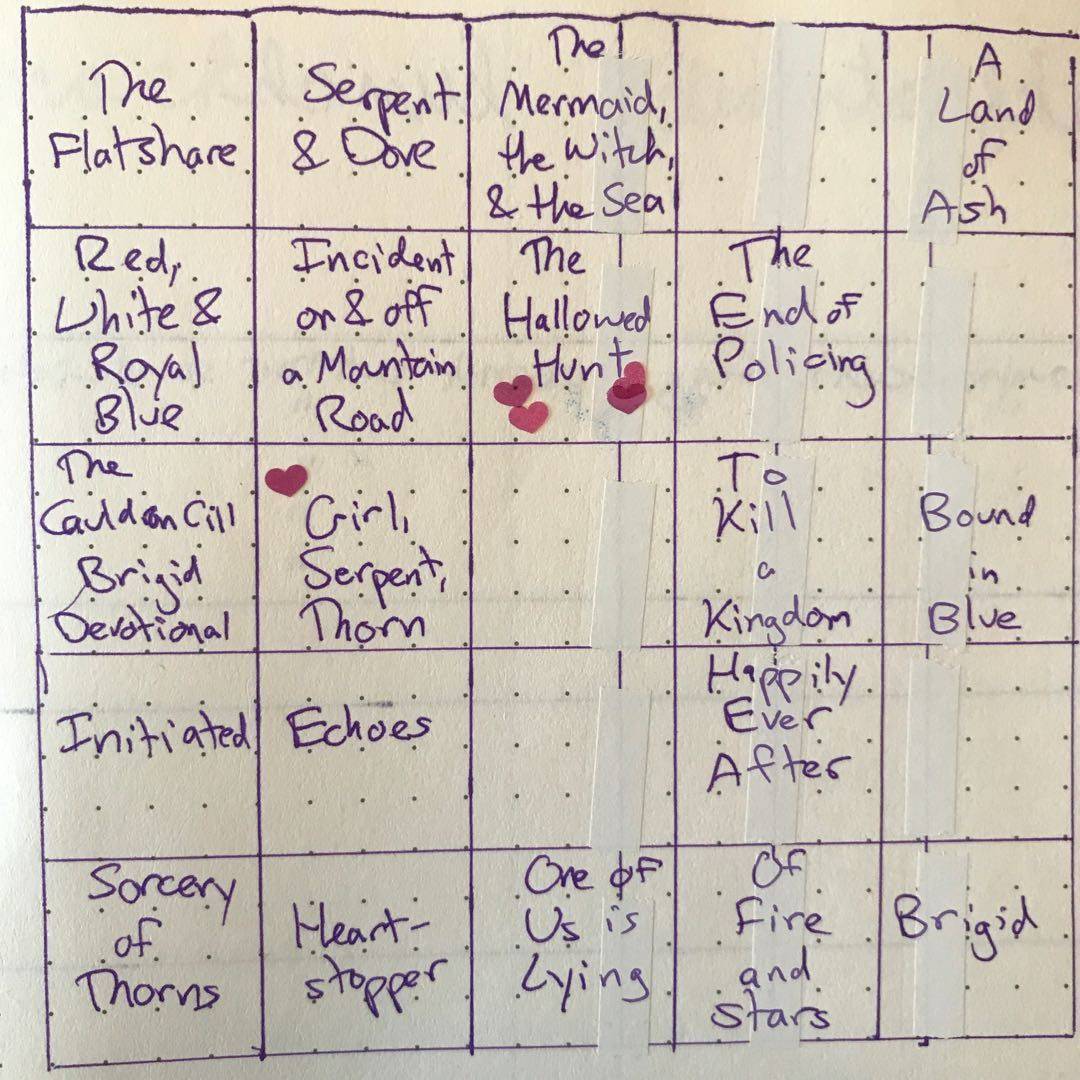 The
Flatshare
Serpent
& Dove
The
Mermaid,
the Witch,
& the Sea
A
Land
of
Ash
Red,
White &
Royal
Blue
Incident
on & off
a Mountain
Road
The
Hallowed
Hunt
The
End of
Policing
The
Cauldon Cill
Brigid
Devotional
Girl,
Serpent,
Thorn
To
Kill
a
Kingdom
Bound
in
Blue
Initiated
Echoes
Happily
Ever
After
Sorcery
of
Thorns
Heart-
stopper
One of
Us is
Lying
Of
Fire
and
Stars
Brigid